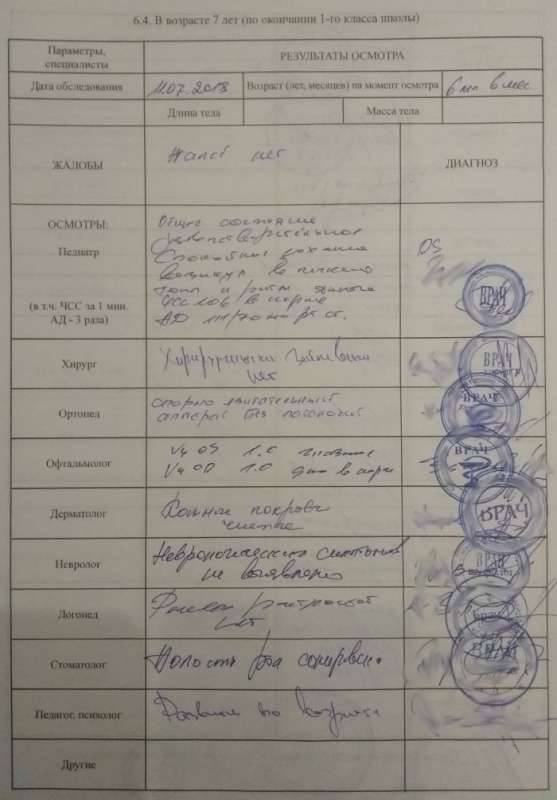 6.4. В возрасте 7 лет (по окончании 1-го класса школы)
Параметры, специалисты
РЕЗУЛЬТАТЫ ОСМОТРА
Дата обследования
11.07.2018
Возраст (лет, месяцев) на момент осмотра
6 лет 8 мес
Длина тела
Масса тела
ЖАЛОБЫ
Жалоб нет
ДИАГНОЗ
ОСМОТРЫ:
Педиатр
(в т.ч. ЧСС за 1 мин.
АД - 3 раза)
Общее состояние
удовлетворительное
Спокойный
в норме
АД 111/70 мм рт ст.
ВРАЧ
Хирург
нет
ВРАЧ
Ортопед
опорно двигательный
аппарат без патологий
ВРАЧ
Офтальмолог
Vs OS 1.0 глазное
Vs OD 1.0 дно в норме
ВРАЧ
Дерматолог
Кожные покровы
чистые
ВРАЧ
Невролог
Неврологических симптомов
не выявлено
ВРАЧ
Логопед
нет
ВРАЧ
Стоматолог
Полость рта санирована
ВРАЧ
Педагог, психолог
Развитие по возрасту
Другие